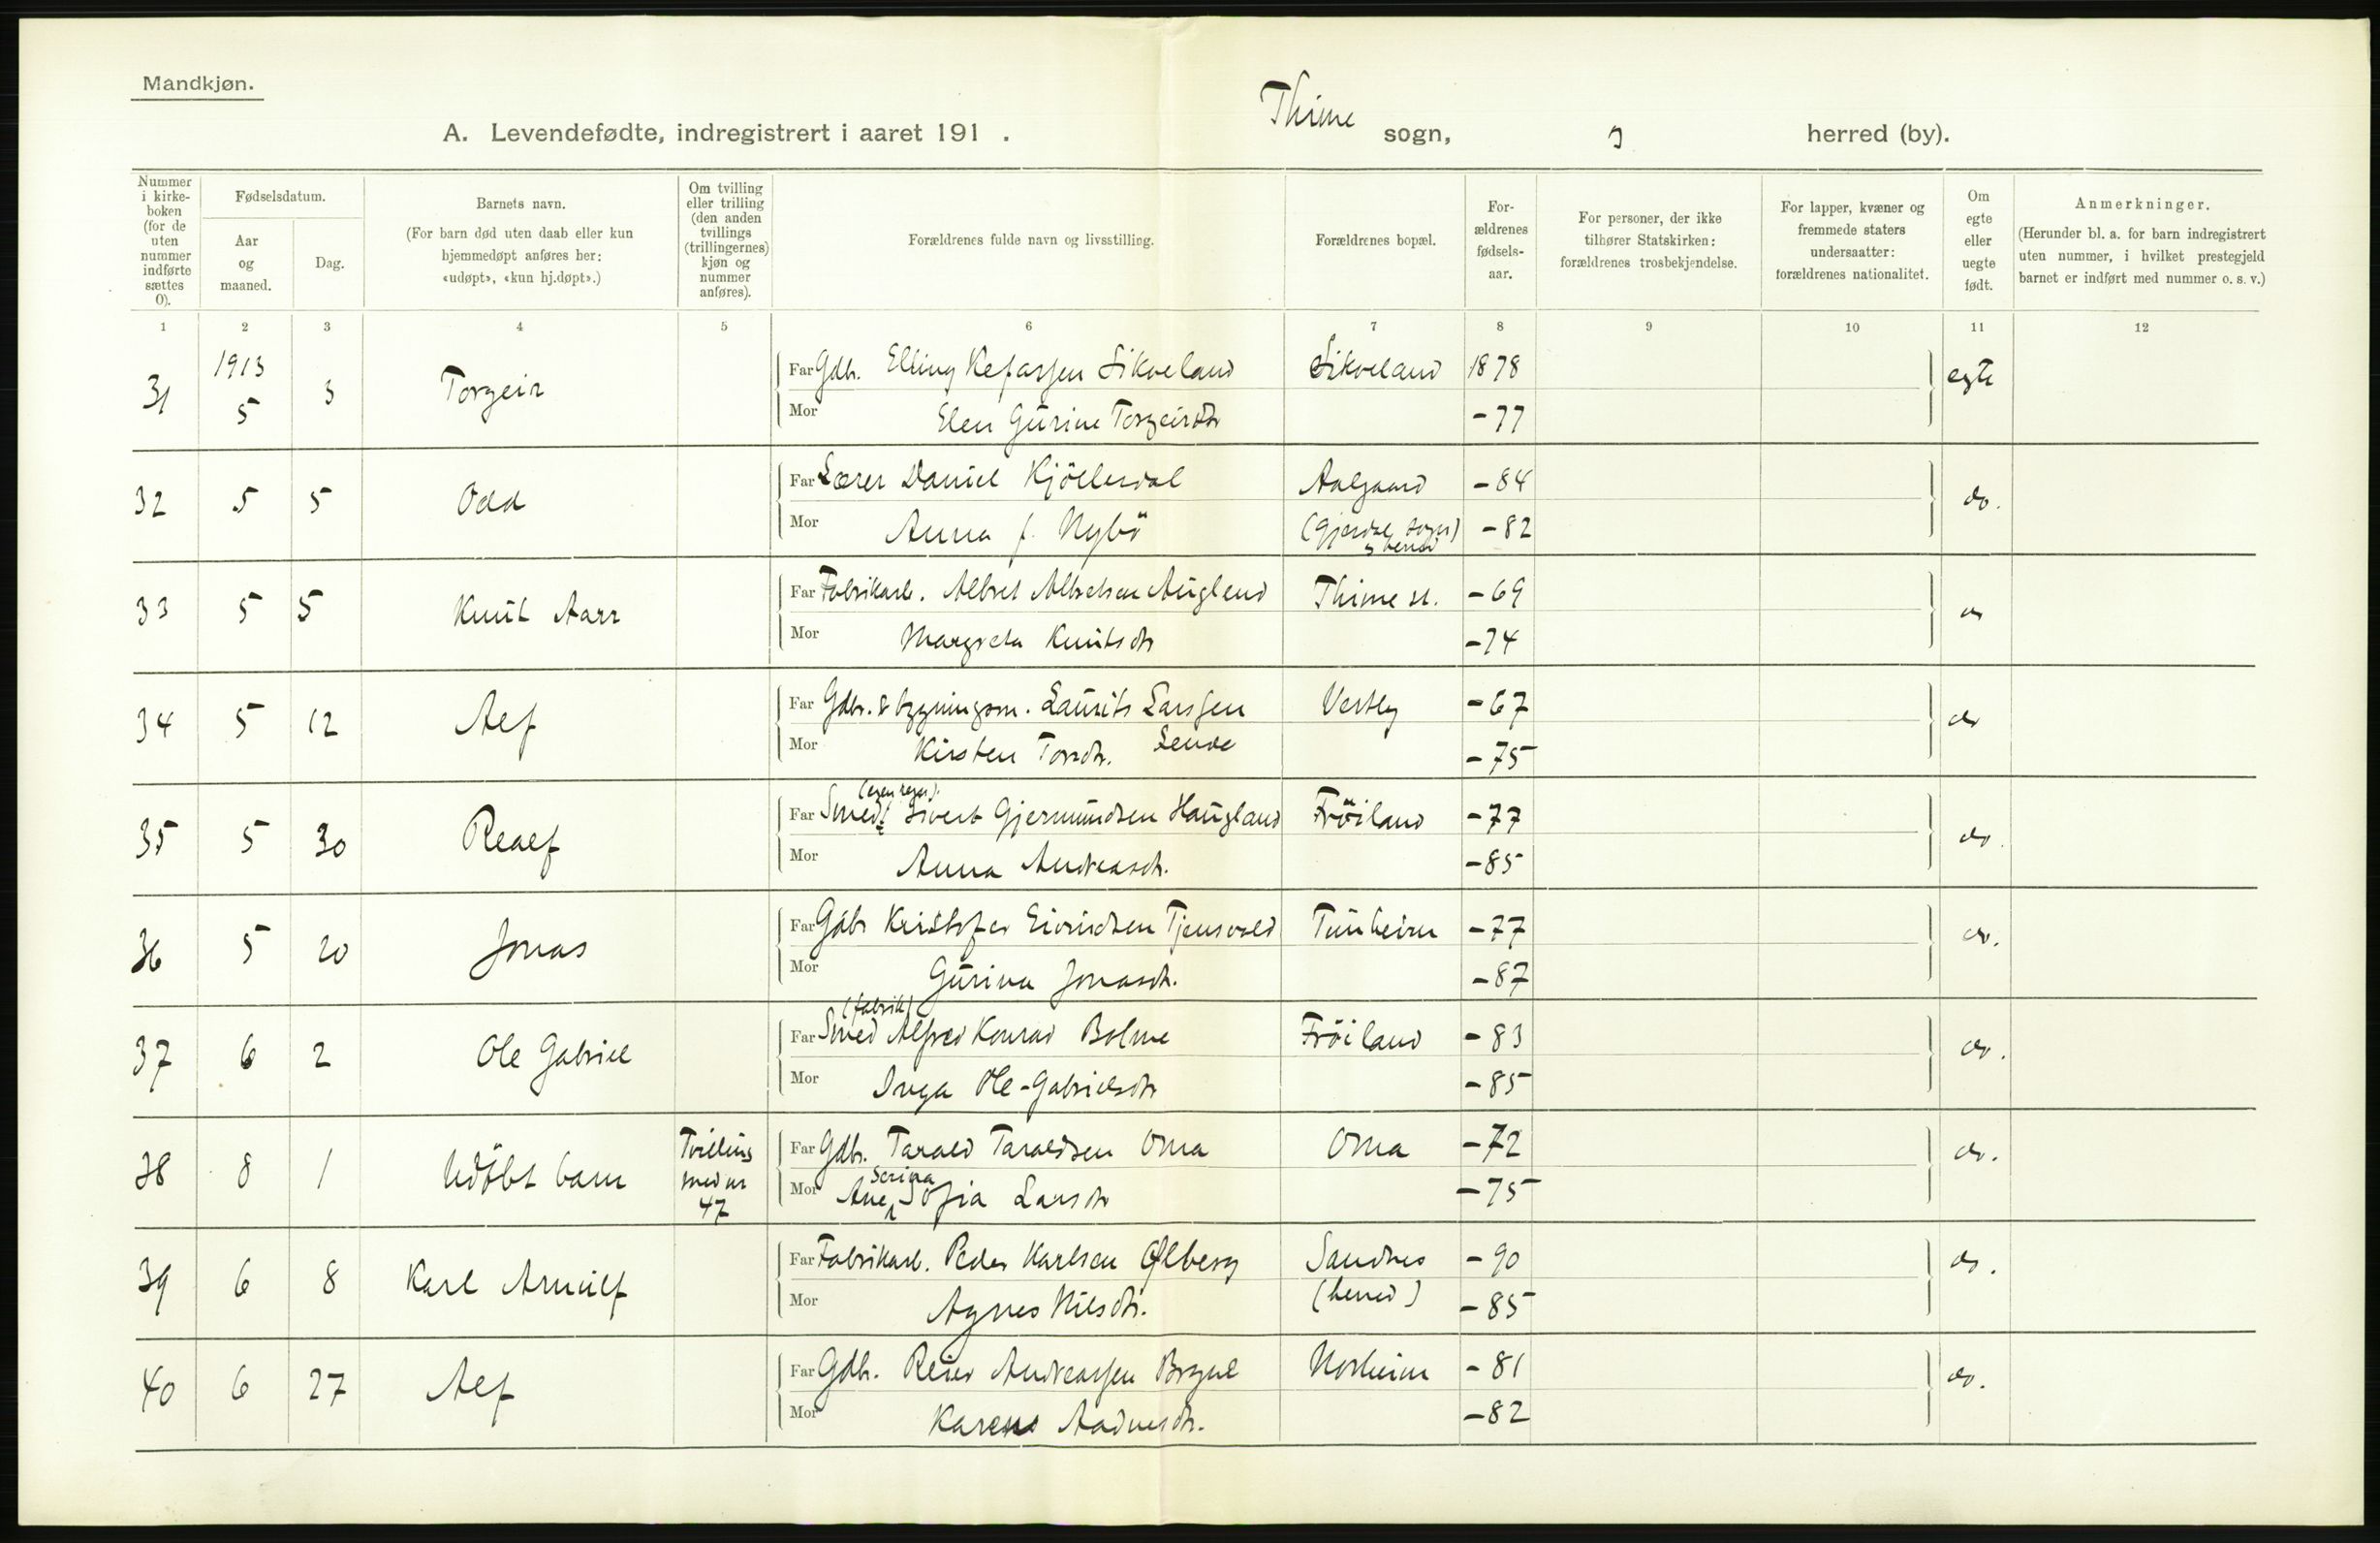 Mandkjøn.
A. Levendefødte, indregistrert i aaret 191 . Thime sogn, herred (by).
Nummer i kirkeboken (for de uten nummer indførte sættes 0).
Fødselsdatum.
Aar og maaned.
Dag.
Barnets navn.
(For barn død uten daab eller kun hjemmedøpt anføres her: «udøpt», «kun hj.døpt».)
Om tvilling eller trilling (den anden tvillings (trillingernes) kjøn og nummer anføres).
Forældrenes fulde navn og livsstilling.
Forældrenes bopæl.
Forældrenes fødselsaar.
For personer, der ikke tilhører Statskirken: forældrenes trosbekjendelse.
For lapper, kvæner og fremmede staters undersaatter: forældrenes nationalitet.
Om egte eller uegte født.
Anmerkninger.
(Herunder bl. a. for barn indregistrert uten nummer, i hvilket prestegjeld barnet er indført med nummer o. s. v.)
1 2 3 4 5 6 7 8 9 10 11 12
31 1913 5 3 Torgeir Far Gdb. Elling Kefassen Sikveland Sikveland 1878 egte
Mor Elen Gurine Torgeirsdtr -77
32 5 5 Odd Far Lærer Daniel Kjöllesdal Aalgaard -84 do.
Mor Anna f. Nybö (Gjesdal sogn) -82
& herred
33 5 5 Knut Aarr Far Fabrikarb. Albret Albretsen Augland Thime st. -69 do
Mor Margreta Knutsdtr -74
34 5 12 Alf Far Gdbr. & bygningsm. Laurits Larssen Vestly -67 do
Mor Kirsten Torsdtr. Lende -75
(egen regn).
35 5 30 Realf Far Smed Sivert Gjermundsen Haugland Fröiland -77 do.
Mor Anna Andreasdtr. -85
36 5 20 Jonas Far Gdbr Kristofer Eivindsen Tjensvold Tunheim -77 do.
Mor Gurina Jonasdtr. -87
(fabrik)
37 6 2 Ole Gabriel Far Smed Alfred Konrad Bolme Fröiland -83 do.
Mor Inga Ole-Gabrielsdtr -85
38 8 1 Udöbt barn Tvilling med nr 47 Far Gdbr. Tarald Taraldsen Oma Oma -72 do.
Mor Ane Serina Sofia Larsdtr -75
39 6 8 Karl Arnulf Far Fabrikarb. Peder Karlsen Ølberg Sandnes -90 do.
Mor Agnes Nilsdtr. (herred) -85
40 6 27 Alf Far Gdb. Reier Andreassen Bryne Norheim -81 do.
Mor Karen Aadnesdtr. -82